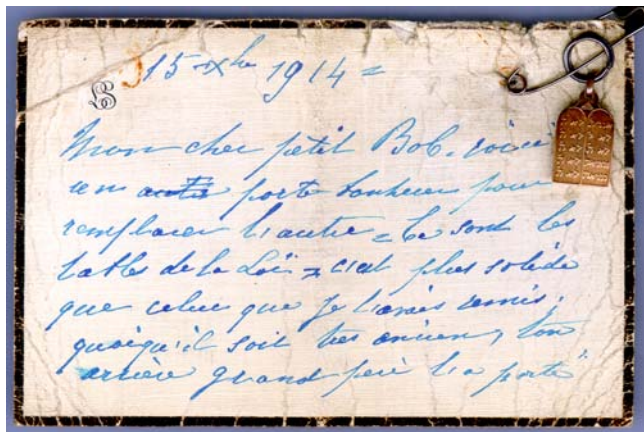 15 Xbre 1914 =
LS
Mon cher petit Bob. voici
un autre porte bonheur pour
remplacer l'autre = Ce sont les
tables de la Loi = c'est plus solide
que celui que je t'avais remis,
quoiqu'il soit très ancien, ton
arrière grand père l'a porté